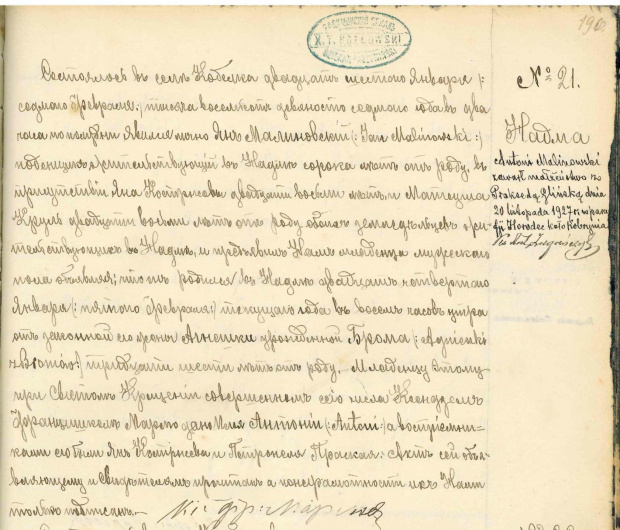 190
№ 21.
Состоялось въ селѣ Кобелка двадцать шестого Января /:
седьмого Февраля:/ тысяча восемьсотъ девяносто седьмого года въ два
часа по полудни Явился лично Янъ Малиновскій /: Jan Malinowski :/
поденщикъ жительствующій въ сорока лѣтъ отъ роду, въ
присутствіи Яна двадцати восьми лѣтъ и Матеуша
Круль двадцати восьми лѣтъ отъ роду обоихъ земледѣльцевъ жи-
тельствующихъ въ и предъявилъ Намъ младенца мужескаго
пола объявляя; что онъ родился въ двадцать четвертаго
Января /: пятого Февраля:/ текущаго года въ восемь часовъ утра
отъ законной его жены Агнешки урожденной Брома /: Agnieszki
z Bromów:/ тридцати шести лѣтъ отъ роду. Младенцу этому
при Святомъ Крещеніи совершенномъ сего числа Ксендзомъ
Францишкомъ дано имя Антоній /: Antoni :/ а воспріемни-
ками его были Янъ и Петронеля Актъ сей объя-
вляющему и Свидѣтелямъ прочитанъ а по неграмотности ихъ Нами
только подписанъ.—
Antoni Malinowski
zawarł małżeństwo z
Praksedą Glińską dnia
20 listopada 1927 r. w para-
fji Horodec koło Kobrynia